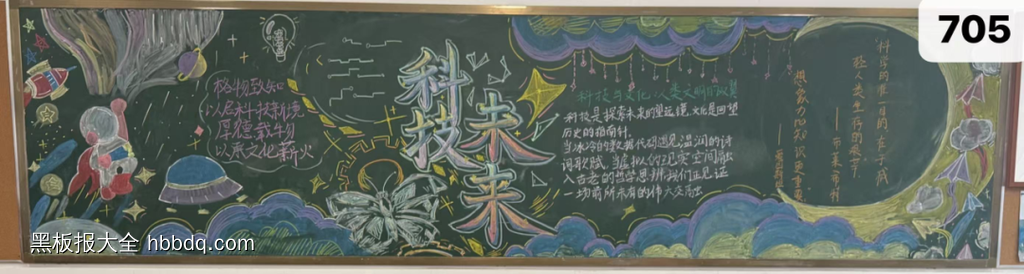 705
格物致知
以启科技新境
厚德载物
以承文化薪火
科技
未来
科技与文化:人类文明的双翼
科技是探索未来的望远镜,文化是回望
历史的指南针.
当冰冷的数据代码遇见温润的诗
词歌赋,当虚拟的现实空间融
入古老的哲学思辨,我们正见证
一场前所未有的伟大交流
科学的唯一目的,在于减
轻人类生存的艰辛.
——布莱希特
想象力比知识更重要
黑板报大全 hbbdq.com